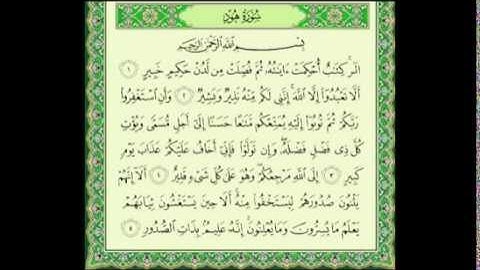 سُورَةُ هُودٍ
بِسْمِ ٱللَّهِ ٱلرَّحْمَٰنِ ٱلرَّحِيمِ
الٓر ۚ كِتَٰبٌ أُحْكِمَتْ ءَايَٰتُهُۥ ثُمَّ فُصِّلَتْ مِن لَّدُنْ حَكِيمٍ خَبِيرٍ ١
أَلَّا تَعْبُدُوٓا۟ إِلَّا ٱللَّهَ ۚ إِنَّنِى لَكُم مِّنْهُ نَذِيرٌ وَبَشِيرٌ ٢ وَأَنِ ٱسْتَغْفِرُوا۟
رَبَّكُمْ ثُمَّ تُوبُوٓا۟ إِلَيْهِ يُمَتِّعْكُم مَّتَٰعًا حَسَنًا إِلَىٰٓ أَجَلٍ مُّسَمًّى وَيُؤْتِ
كُلَّ ذِى فَضْلٍ فَضْلَهُۥ ۖ وَإِن تَوَلَّوْا۟ فَإِنِّىٓ أَخَافُ عَلَيْكُمْ عَذَابَ يَوْمٍ
كَبِيرٍ ٣ إِلَى ٱللَّهِ مَرْجِعُكُمْ ۖ وَهُوَ عَلَىٰ كُلِّ شَىْءٍ قَدِيرٌ ٤ أَلَآ إِنَّهُمْ
يَثْنُونَ صُدُورَهُمْ لِيَسْتَخْفُوا۟ مِنْهُ ۚ أَلَا حِينَ يَسْتَغْشُونَ ثِيَابَهُمْ
يَعْلَمُ مَا يُسِرُّونَ وَمَا يُعْلِنُونَ ۚ إِنَّهُۥ عَلِيمٌۢ بِذَاتِ ٱلصُّدُورِ ٥